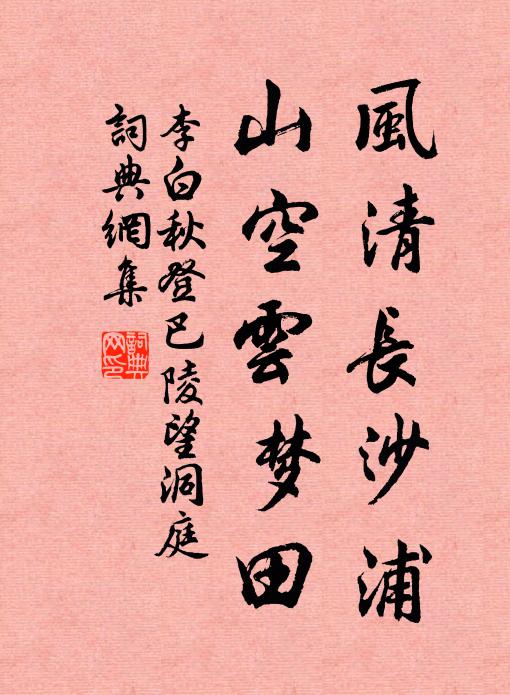 風清長沙浦
山空雲梦田
李白秋登巴陵望洞庭
詞典網集
詞典网印